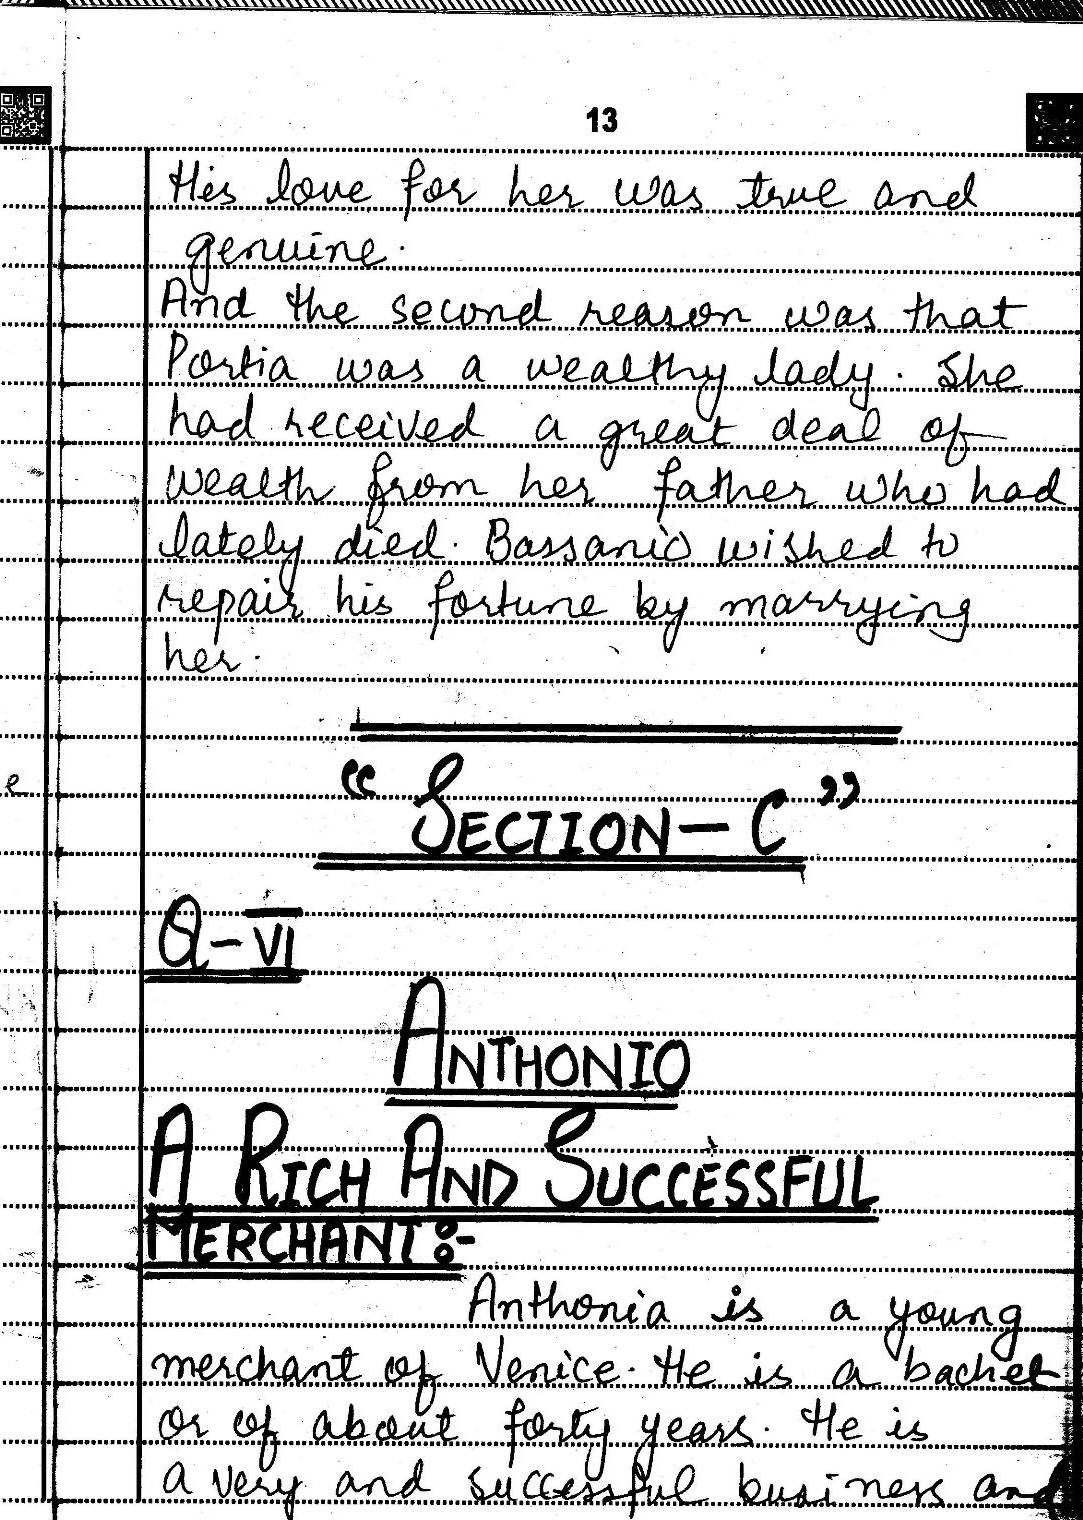 13
His love for her was true and
genuine.
And the second reason was that
Portia was a wealthy lady. She
had received a great deal of
wealth from her father who had
lately died. Bassanio wished to
repair his fortune by marrying
her.
e
"SECTION-C"
Q-VI
ANTHONIO
A RICH AND SUCCESSFUL
MERCHANT:-
Anthonia is a young
merchant of Venice. He is a bachel
or of about forty years. He is
a very and successful business and